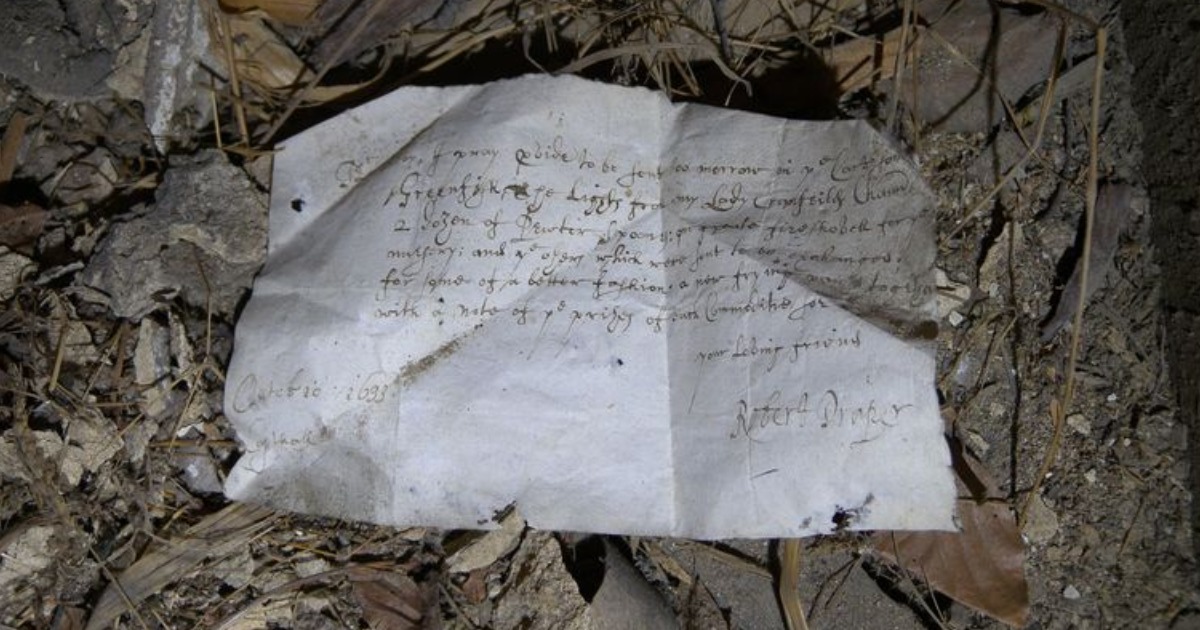 I pray p'vide to be sent to morrow in ye Cart some
Greenfish, ye Lights from my Lady Cranfeild Cham
2 dozen of Pewter spoons: one greate fireshovell for ye
nursery: and ye others which were sent to be exchanged
for some of a better fashion, a new frying pan together
with a note of ye prises of such Commodities for
your loving friend
Robert Draper
Octob 1633